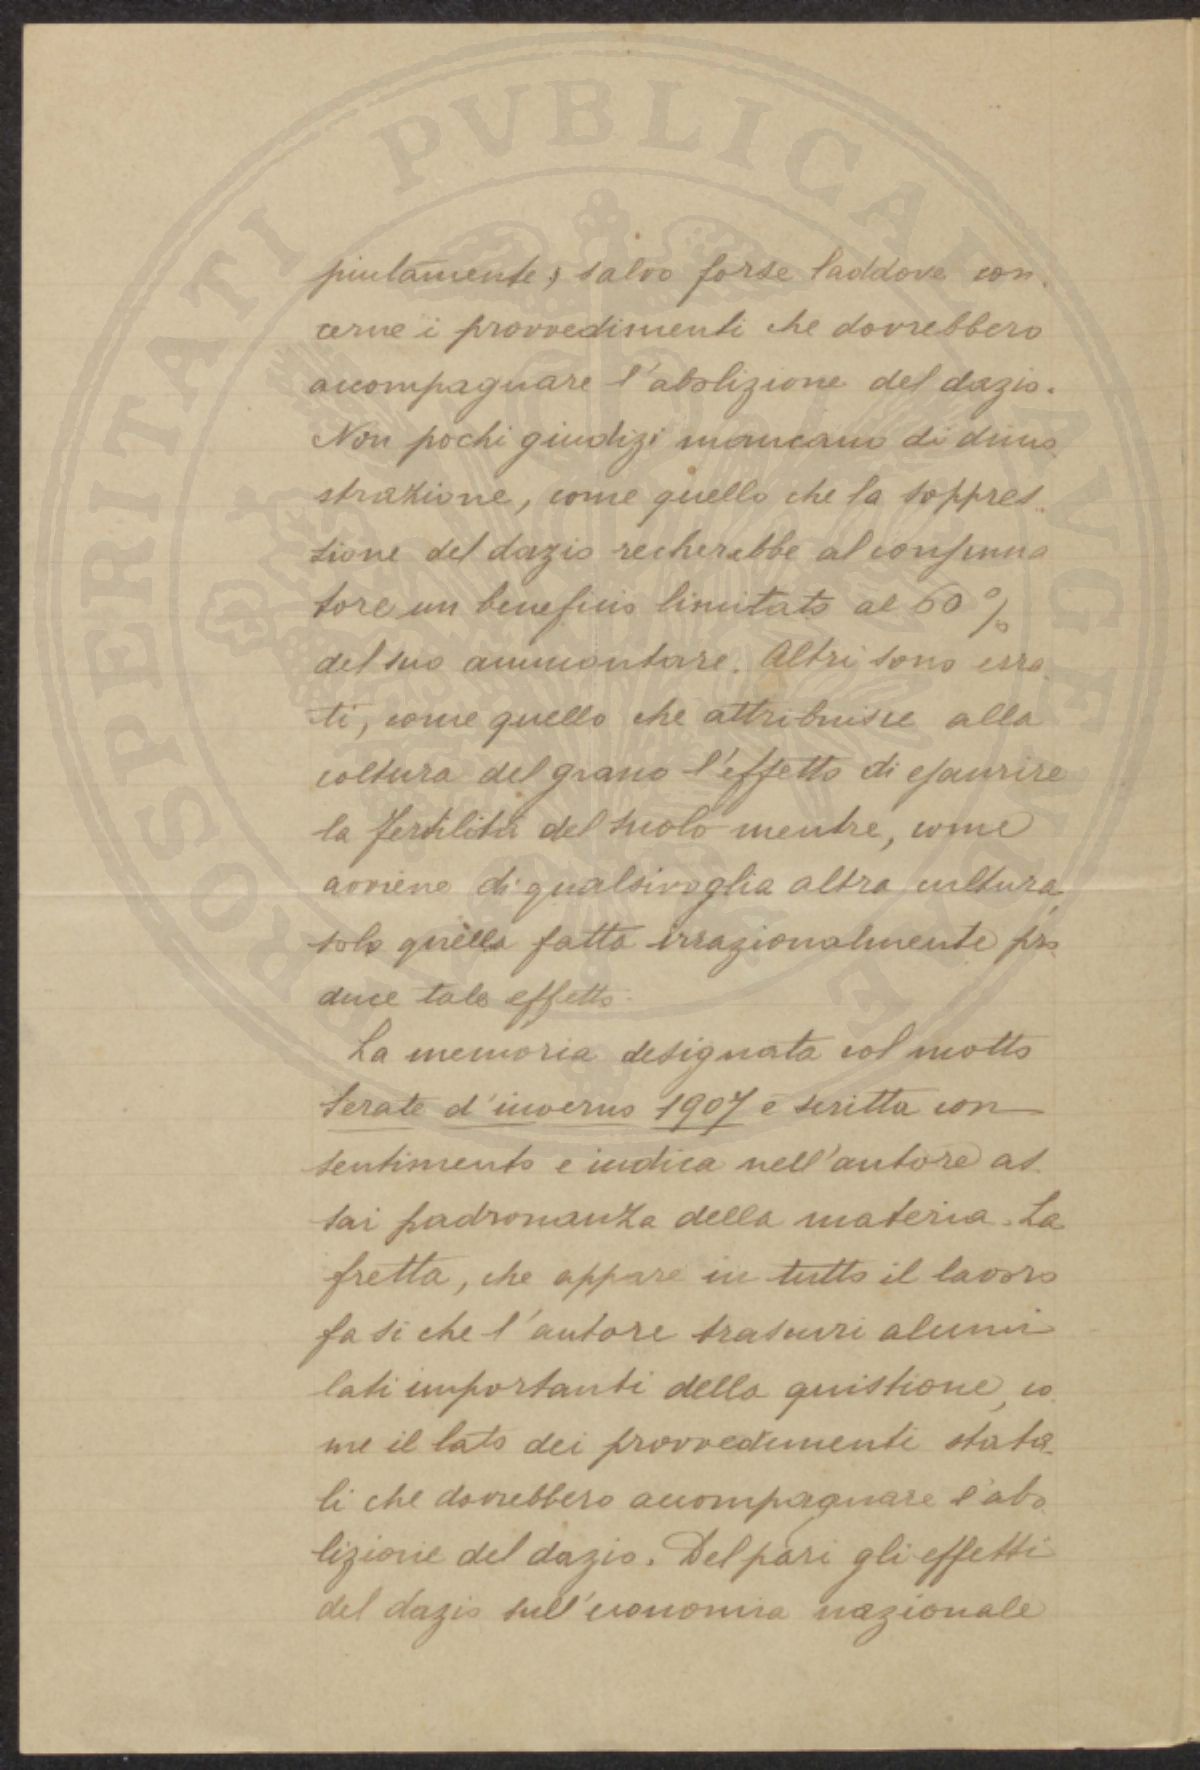 piutamente, salvo forse laddove con-
cerne i provvedimenti che dovrebbero
accompagnare l'abolizione del dazio.
Non pochi giudizi mancano di dimo-
strazione, come quello che la soppres-
sione del dazio recherebbe al consuma
tore un beneficio limitato al 60 %
del suo ammontare. Altri sono erra-
ti, come quello che attribuisce alla
coltura del grano l'effetto di esaurire
la fertilità del suolo mentre, come
avviene di qualsivoglia altra cultura,
solo quella fatta irrazionalmente pro-
duce tale effetto.
La memoria designata col motto
Serate d'inverno 1907 è scritta con
sentimento e indica nell'autore as-
sai padronanza della materia. La
fretta, che appare in tutto il lavoro
fa sì che l'autore trascuri alcuni
lati importanti della quistione, co-
me il lato dei provvedimenti stata-
li che dovrebbero accompagnare l'abo-
lizione del dazio. Del pari gli effetti
del dazio sull'economia nazionale
PROSPERITATI PVBLICAE AVGENDAE